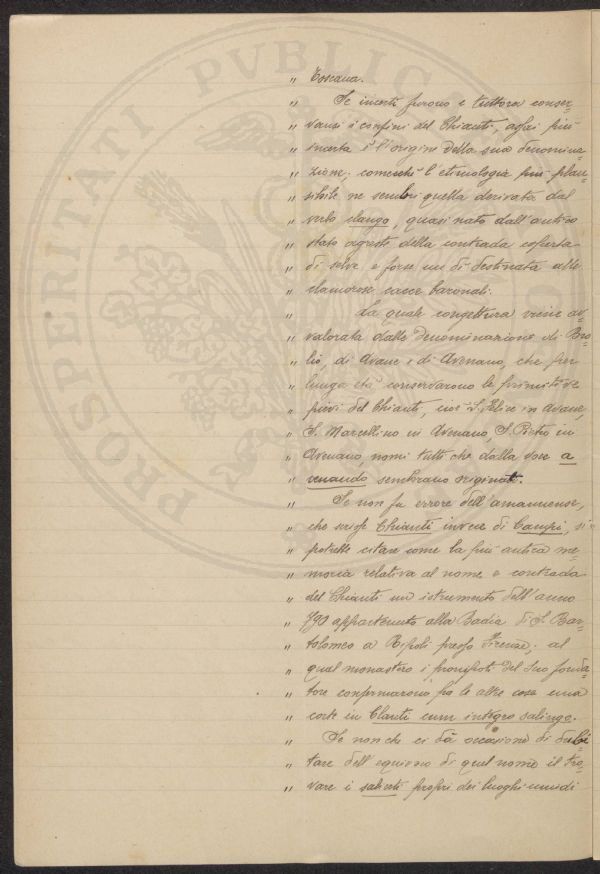 " Toscana.
" Se incerti furono e tuttora conser-
" vansi i confini del Chianti, assai più
" incerta è l'origine della sua denomina-
" zione; comecchè l'etimologia più plau-
" sibile ne sembri quella derivata dal
" verbo clango, quasi nato dall'antico
" stato agreste della contrada coperta
" di selve e forse un dì destinata alle
" clamorose cacce baronali.
" La quale congettura viene av-
" valorata dalle denominazione di Bro-
" lio, di Avane e di Avenano, che per
" lunga età conservarono le primitive
" pievi del Chianti, cioè S. Felice in Avane,
" S. Marcellino in Avenano, S. Pietro in
" Avenano, nomi tutti che dalla voce a
" venando sembrano originati.
" Se non fu errore dell'amanuense,
" che scrisse Chianti invece di Campi, si
" potrebbe citare come la più antica me-
" moria relativa al nome e contrada
" del Chianti un istrumento dell'anno
" 790 appartenuto alla Badia di S. Bar-
" tolomeo a Ripoli presso Firenze; al
" qual monastero i pronipoti del suo fonda-
" tore confirmarono fra le altre cose una
" corte in Clanti cum integro salingo.
" Se non che ci dà occasione di dubi-
" tare dell'equivoco di quel nome il tro-
" vare i saliceti propri dei luoghi umidi
PROSPERITATI PVBLICAE